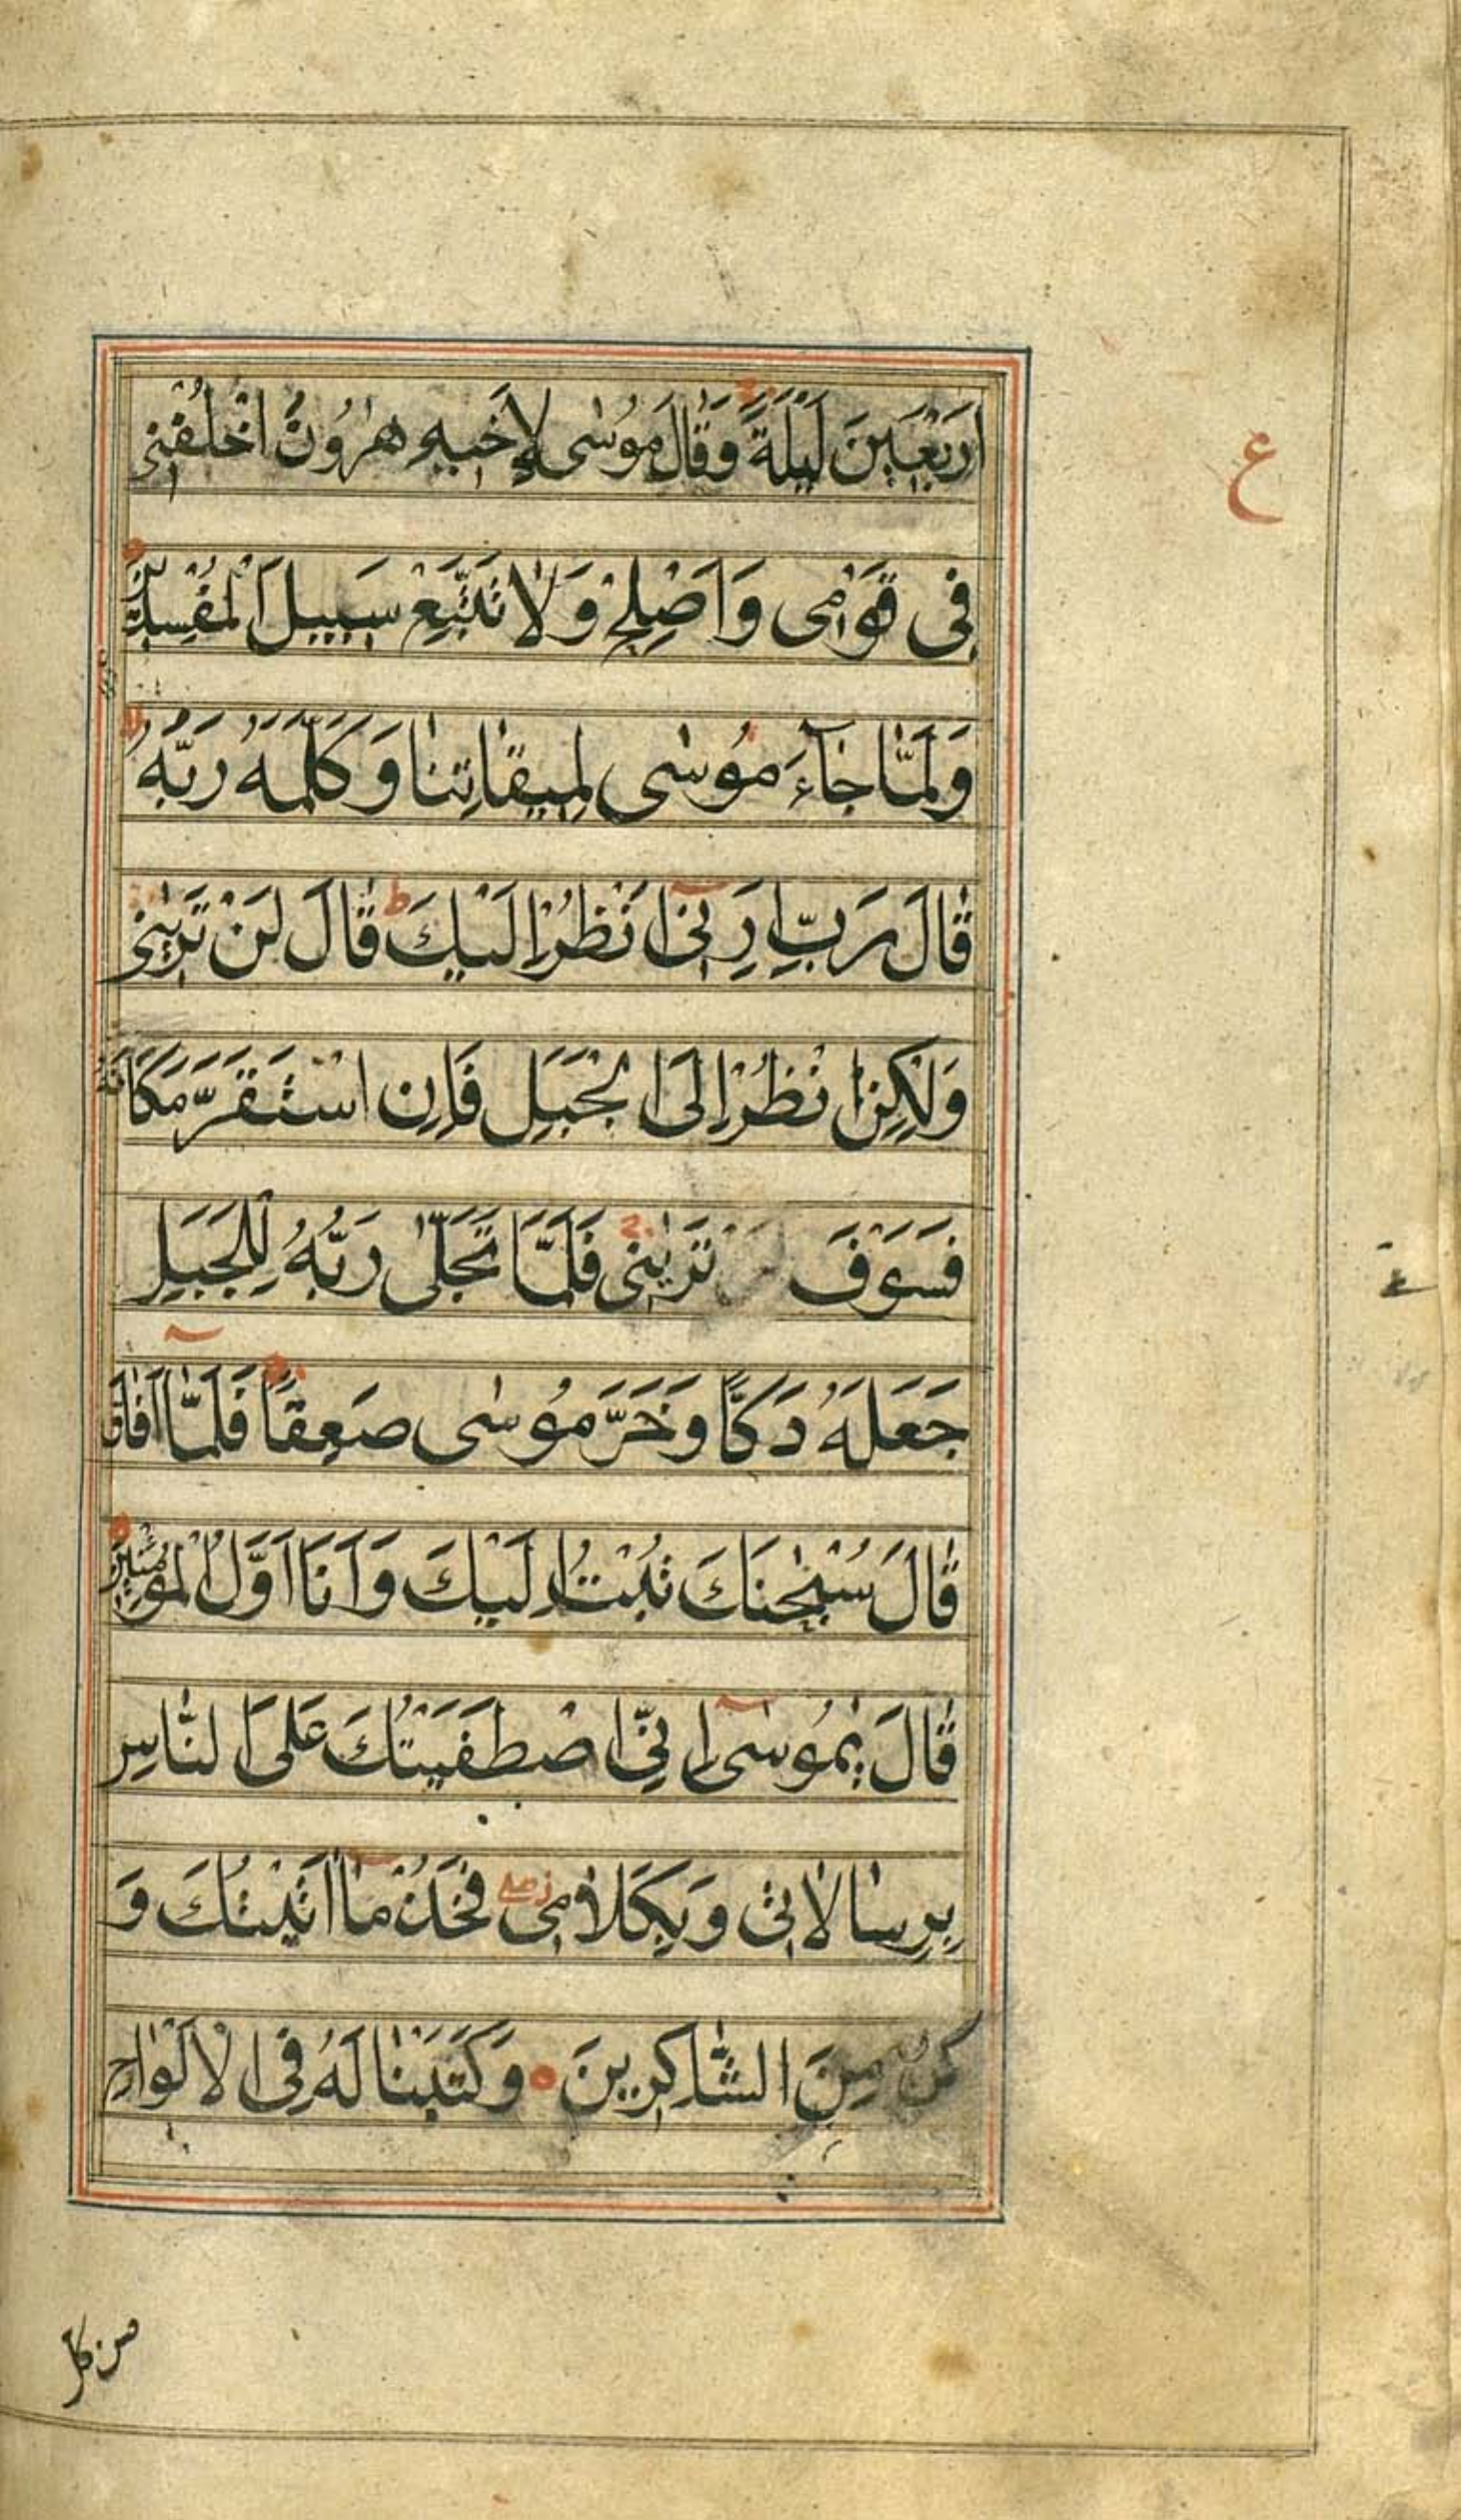 اَرْبَعٖينَ لَيْلَةً وَقَالَ مُوسٰى لِاَخٖيهِ هٰرُونَ اخْلُفْنٖى
فٖى قَوْمٖى وَاَصْلِحْ وَلَا تَتَّبِعْ سَبٖيلَ الْمُفْسِدٖينَ
وَلَمَّا جَآءَ مُوسٰى لِمٖيقَاتِنَا وَكَلَّمَهُ رَبُّهُ
قَالَ رَبِّ اَرِنٖٓى اَنْظُرْ اِلَيْكَ ط قَالَ لَنْ تَرٰينٖى
وَلٰكِنِ انْظُرْ اِلَى الْجَبَلِ فَاِنِ اسْتَقَرَّ مَكَانَهُ
فَسَوْفَ تَرٰينٖى فَلَمَّا تَجَلّٰى رَبُّهُ لِلْجَبَلِ
جَعَلَهُ دَكًّا وَخَرَّ مُوسٰى صَعِقًا فَلَمَّآ اَفَاقَ
قَالَ سُبْحٰنَكَ تُبْتُ اِلَيْكَ وَاَنَا اَوَّلُ الْمُؤْمِنٖينَ
قَالَ يٰمُوسٰٓى اِنِّى اصْطَفَيْتُكَ عَلَى النَّاسِ
بِرِسَالَاتٖى وَبِكَلَامٖى فَخُذْ مَآ اٰتَيْتُكَ وَ
كُنْ مِنَ الشَّاكِرٖينَ وَكَتَبْنَا لَهُ فِى الْاَلْوَاحِ
من كل
ع